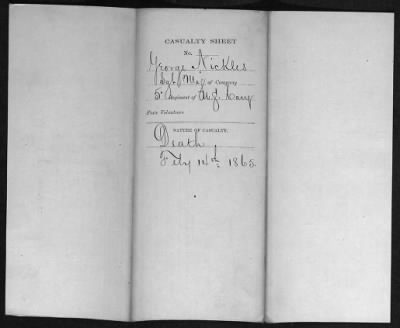 CASUALTY SHEET
No.
George Nickles
Sgt Maj of Company
5" Regiment of U.S. Cavy
State Volunteers
NATURE OF CASUALTY.
Death
Feby 14th 1865.